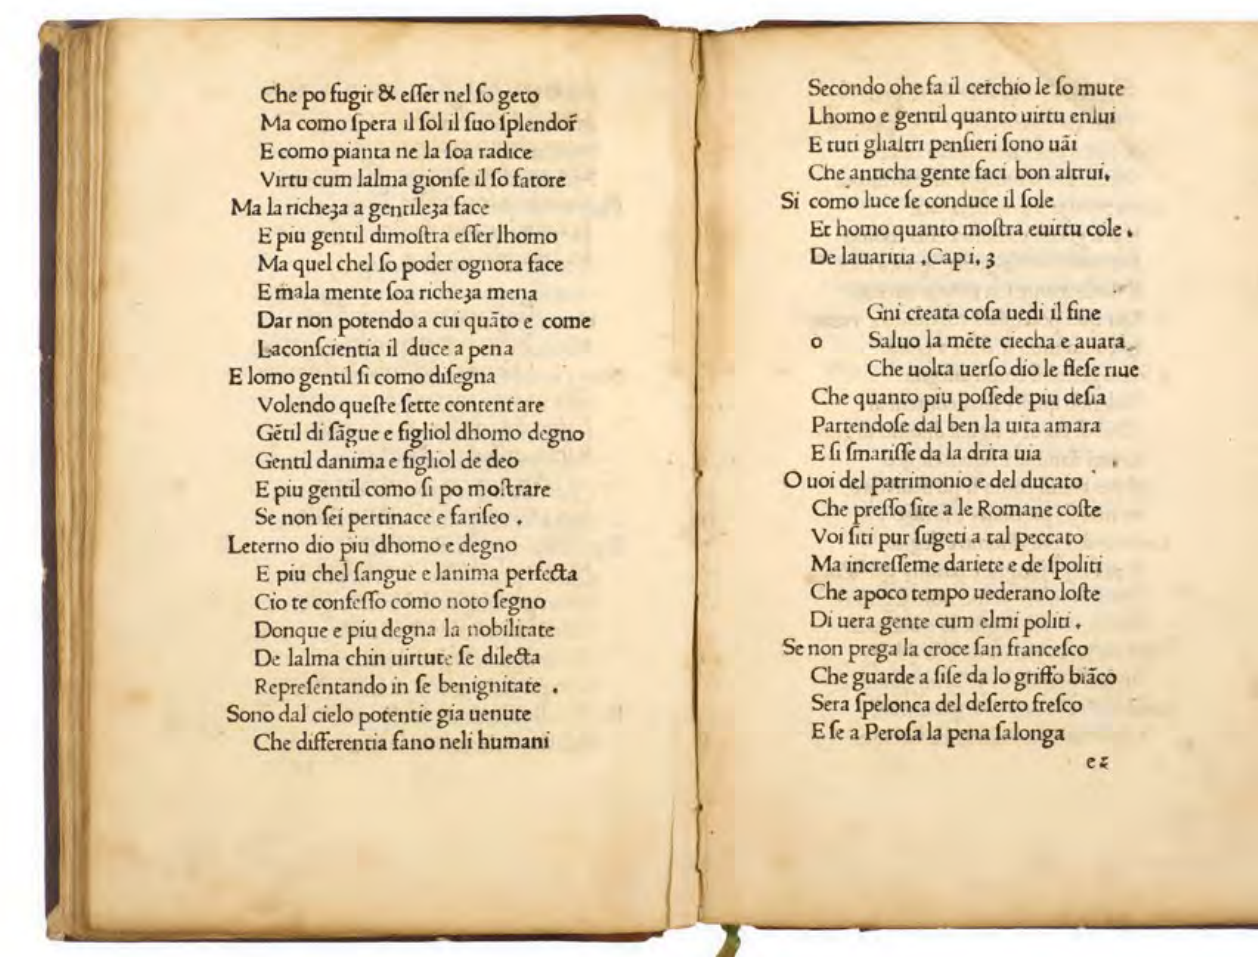 Che po fugir & eſſer nel ſo geto
Ma como ſpera il ſol il ſuo ſplendor̃
E como pianta ne la ſoa radice
Virtu cum lalma gionſe il ſo fatore
Ma la richeza a gentileza face
E piu gentil dimoſtra eſſer lhomo
Ma quel chel ſo poder ognora face
E mala mente ſoa richeza mena
Dar non potendo a cui quãto e come
Laconſcientia il duce a pena
E lomo gentil ſi como diſegna
Volendo queſte ſette content are
Gẽtil di ſãgue e figliol dhomo degno
Gentil danima e figliol de deo
E piu gentil como ſi po moſtrare
Se non ſei pertinace e fariſeo .
Leterno dio piu dhomo e degno
E piu chel ſangue e lanima perfecta
Cio te confeſſo como noto ſegno
Donque e piu degna la nobilitate
De lalma chin uirtute ſe dilecta
Repreſentando in ſe benignitate .
Sono dal cielo potentie gia uenute
Che differentia fano neli humani
Secondo ohe fa il cerchio le ſo mute
Lhomo e gentil quanto uirtu enlui
E tuti glialtri penſieri ſono uãi
Che anticha gente faci bon altrui.
Si como luce ſe conduce il ſole
Et homo quanto moſtra euirtu cole .
De lauaritia .Cap i. 3
Gni creata coſa uedi il fine
o Saluo la mẽte ciecha e auara
Che uolta uerſo dio le ſteſe riue
Che quanto piu poſſede piu deſia
Partendoſe dal ben la uita amara
E ſi ſmariſſe da la drita uia
O uoi del patrimonio e del ducato
Che preſſo ſite a le Romane coſte
Voi ſiti pur ſugeti a tal peccato
Ma increſſeme dariete e de ſpoliti
Che apoco tempo uederano loſte
Di uera gente cum elmi politi .
Se non prega la croce ſan franceſco
Che guarde a ſiſe da lo griffo biãco
Sera ſpelonca del deſerto freſco
E ſe a Peroſa la pena ſalonga